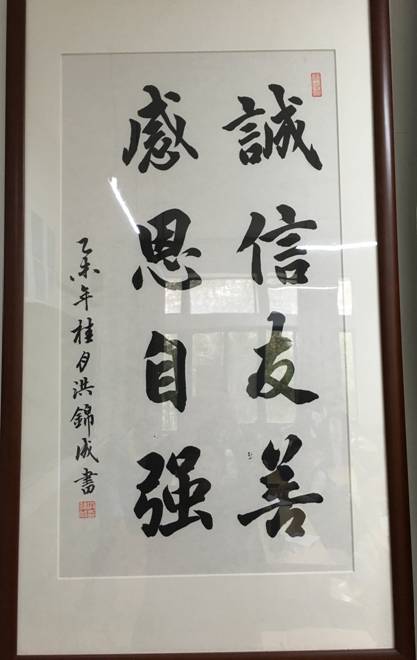 誠信友善
感恩自强
乙未年桂月洪錦成書